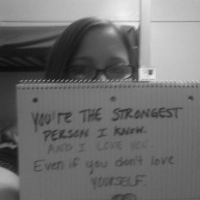 You're the strongest
person I know.
AND I LOVE YOU.
Even if you don't love
yourself.